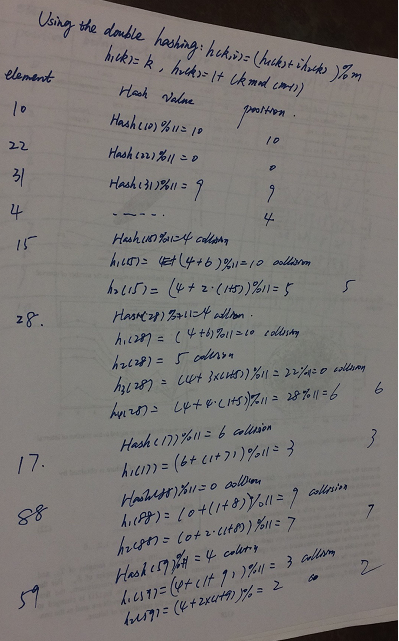 Using the double hashing: h(k,i)=(h1(k)+ih2(k))%m
h1(k)=k, h2(k)=1+(k mod (m-1))
element Hash value position.
10 Hash(10)%11=10 10
22 Hash(22)%11=0 0
31 Hash(31)%11=9 9
4 ------ 4
15 Hash(15)%11=4 collision
h1(15)=(4+6)%11=10 collision
h2(15)=(4+2·(1+5))%11=5 5
28. Hash(28)%11=4 collision.
h1(28)=(4+6)%11=10 collision
h2(28)=5 collision
h3(28)=(4+3×(1+5))%11=22%11=0 collision
h4(28)=(4+4·(1+5))%11=28%11=6 6
17. Hash(17)%11=6 collision
h1(17)=(6+(1+7))%11=3 3
88 Hash(88)%11=0 collision
h1(88)=(0+(1+8))%11=9 collision
h2(88)=(0+2·(1+8))%11=7 7
59 Hash(59)%11=4 collision
h1(59)=(4+(1+9))%11=3 collision
h2(59)=(4+2×(1+9))%=2 2